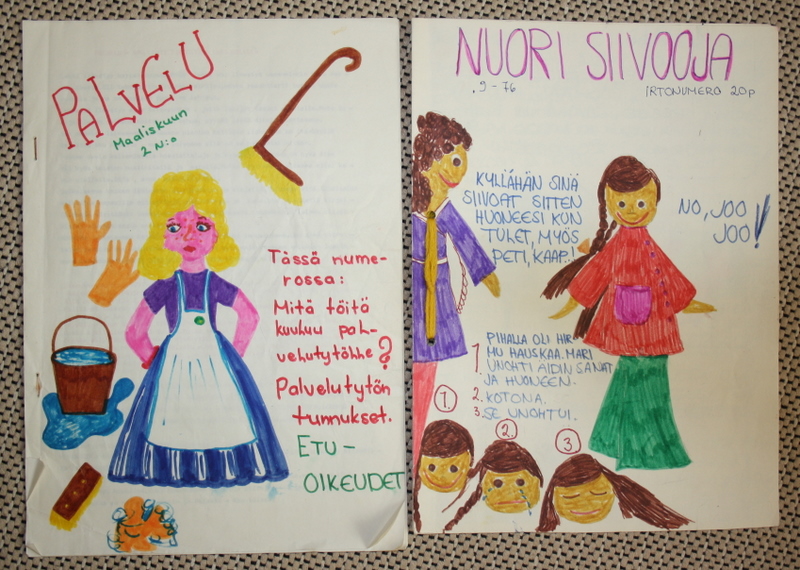 PALVELU
Maaliskuun
2 N:o
Tässä nume-
rossa:
Mitä töitä
kuuluu pal-
velutytölle?
Palvelutytön
tunnukset.
ETU-
OIKEUDET
NUORI SIIVOOJA
.9-76
IRTONUMERO 20p
KYLLÄHÄN SINÄ
SIIVOAT SITTEN
HUONEESI KUN
TULET, MYÖS
PETI, KAAP..!
NO, JOO
JOO!
1. PIHALLA OLI HIR
MU HAUSKAA. MARI
UNOHTI ÄIDIN SANAT
JA HUONEEN.
2. KOTONA.
3. SE UNOHTUI.
1.
2.
3.